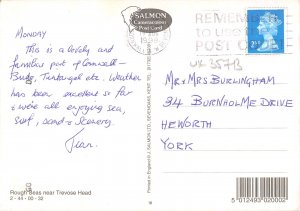 MONDAY
This is a lovely and
familiar part of Cornwall -
Bude, Tintagel etc. Weather
has been excellent so far
& we're all enjoying sea,
surf, sand & scenery.
Jean.
Rough Seas near Trevose Head
2-44-00-32
SALMON
Cameracolour
Post Card
Printed in England © J. SALMON LTD., SEVENOAKS, KENT.
REMEMBER
TO USE THE
POSTCODE
2nd
UK 357B
Mr & Mrs BURLINGHAM
34 BURNHOLME DRIVE
HEWORTH
YORK
5 012493 020002